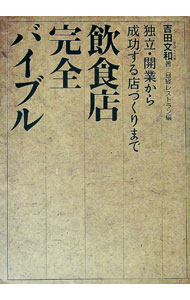 飲食店
完全
バイブル
独立・開業から
成功する店づくりまで
吉田文和 著 日経レストラン 編